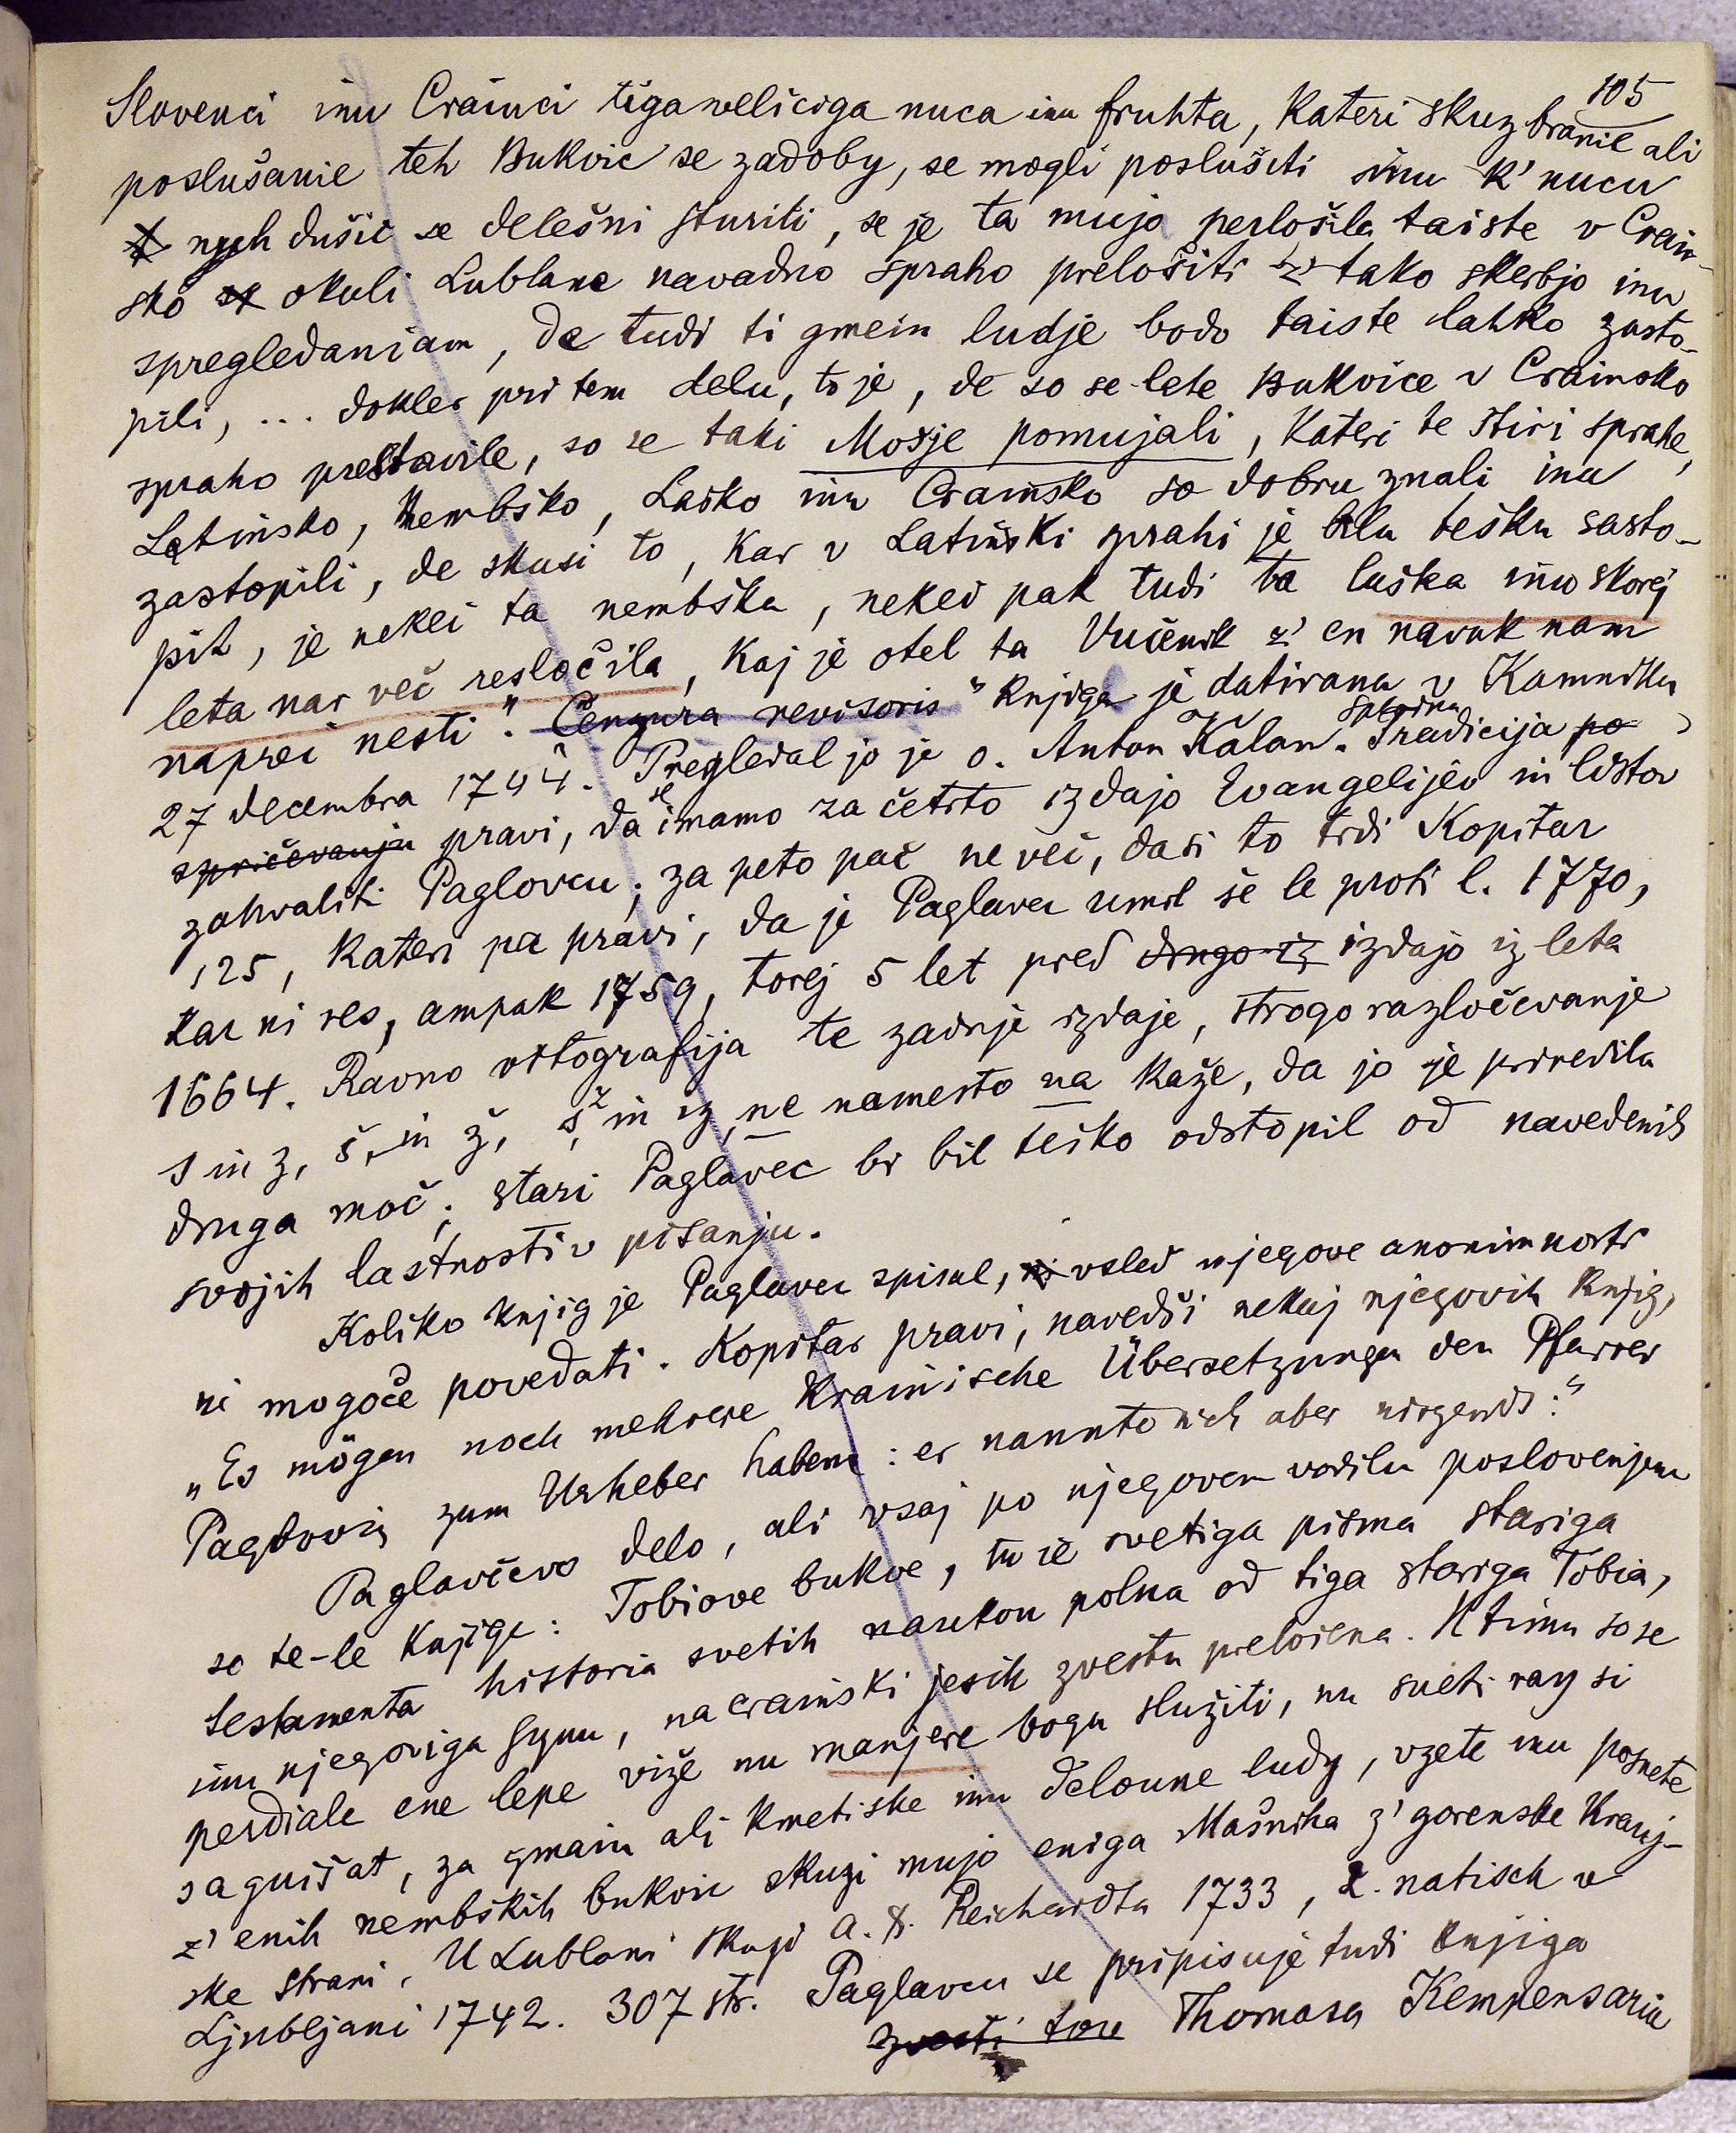 105
Slovenci inu Crainci tiga veliciga nuca inu fruhta, Kateri skuz branie ali
poslušanie teh Bukvic se zadoby, se mogli poslušiti inu k' nucu
nyh dušic se delešni sturiti, se je ta muja perložila taiste v Crain-
sko okuli Lublane navadno spraho preložiti z' tako skerbjo inu
spregledaniam, de tudi ti gmein ludje bodo taiste lahko zasto-
pili, ... dokler pri tem delu, to je, de so se lete Bukvice v Crainsko
spraho prestavile, so se taki Možje pomujali, Kateri te štiri sprahe,
Latinsko, Nembško, Laško inu Crainsko so dobru znali inu
zastopili, de skusi to, kar v Latinski sprahi je blu tešku sasto-
pit, je nekei ta nembška, nekei pak tudi ta laška inu skorej
leta nar več resločila, kaj je otel ta Vučenik z' en navuk nam
naprei nesti". Cenzura revisoris" Knjiga je datirana v Kamniku
27 decembra 1744. Pregledal jo je o. Anton Kalan. Splošna Tradicija po
spričevanju pravi, da se imamo za četrto izdajo Evangelijev in listov
zahvaliti Paglovcu; za peto pač ne več, dasi to trdi Kopitar
125, Kateri pa pravi, da je Paglavec umrl še le proti l. 1770,
kar ni res, ampak 1759, torej 5 let pred drugo iz izdajo iz leta
1664. Ravno ortografija te zadnje izdaje, strogo razločevanje
s in z, š in ž, s, z in iz, ne namesto na kaže, da jo je priredila
druga moč; stari Paglavec bi bil teško odstopil od navedenih
svojih lastnosti v pisanju.
Koliko knjig je Paglavec spisal, vsled njegove anonimnosti
ni mogoče povedati. Kopitar pravi, navedši nekaj njegovih knjig,
„Es mögen noch mehrere Krainische Übersetzungen den Pfarrer
Paglovic zum Urheber haben: er nannte sich aber nirgends:"
Paglavčevo delo, ali vsaj po njegovem vodilu poslovenjene
so te-le Knjige: Tobiove bukve, tu ie svetiga pisma stariga
testamenta historia svetih naukou polna od tiga stariga Tobia,
inu njegoviga synu, na crainski jesik zvestu preložena. K timu so se
perdiale ene lepe viže nu manjere bogu služiti, nu sueti ray si
saguišat, za gmain ali kmetiske inu deloune ludy, vzete inu posnete
z' enih nembških bukvic skuzi mujo eniga Mašnika z' gorenske Kranj-
ske strani, U Lublani skuzi A. F. Reichardta 1733, 2. natisek v
Ljubljani 1742. 307 str. Paglavcu se pripisuje tudi knjiga
zvesti tov Thomasa Kempensaria